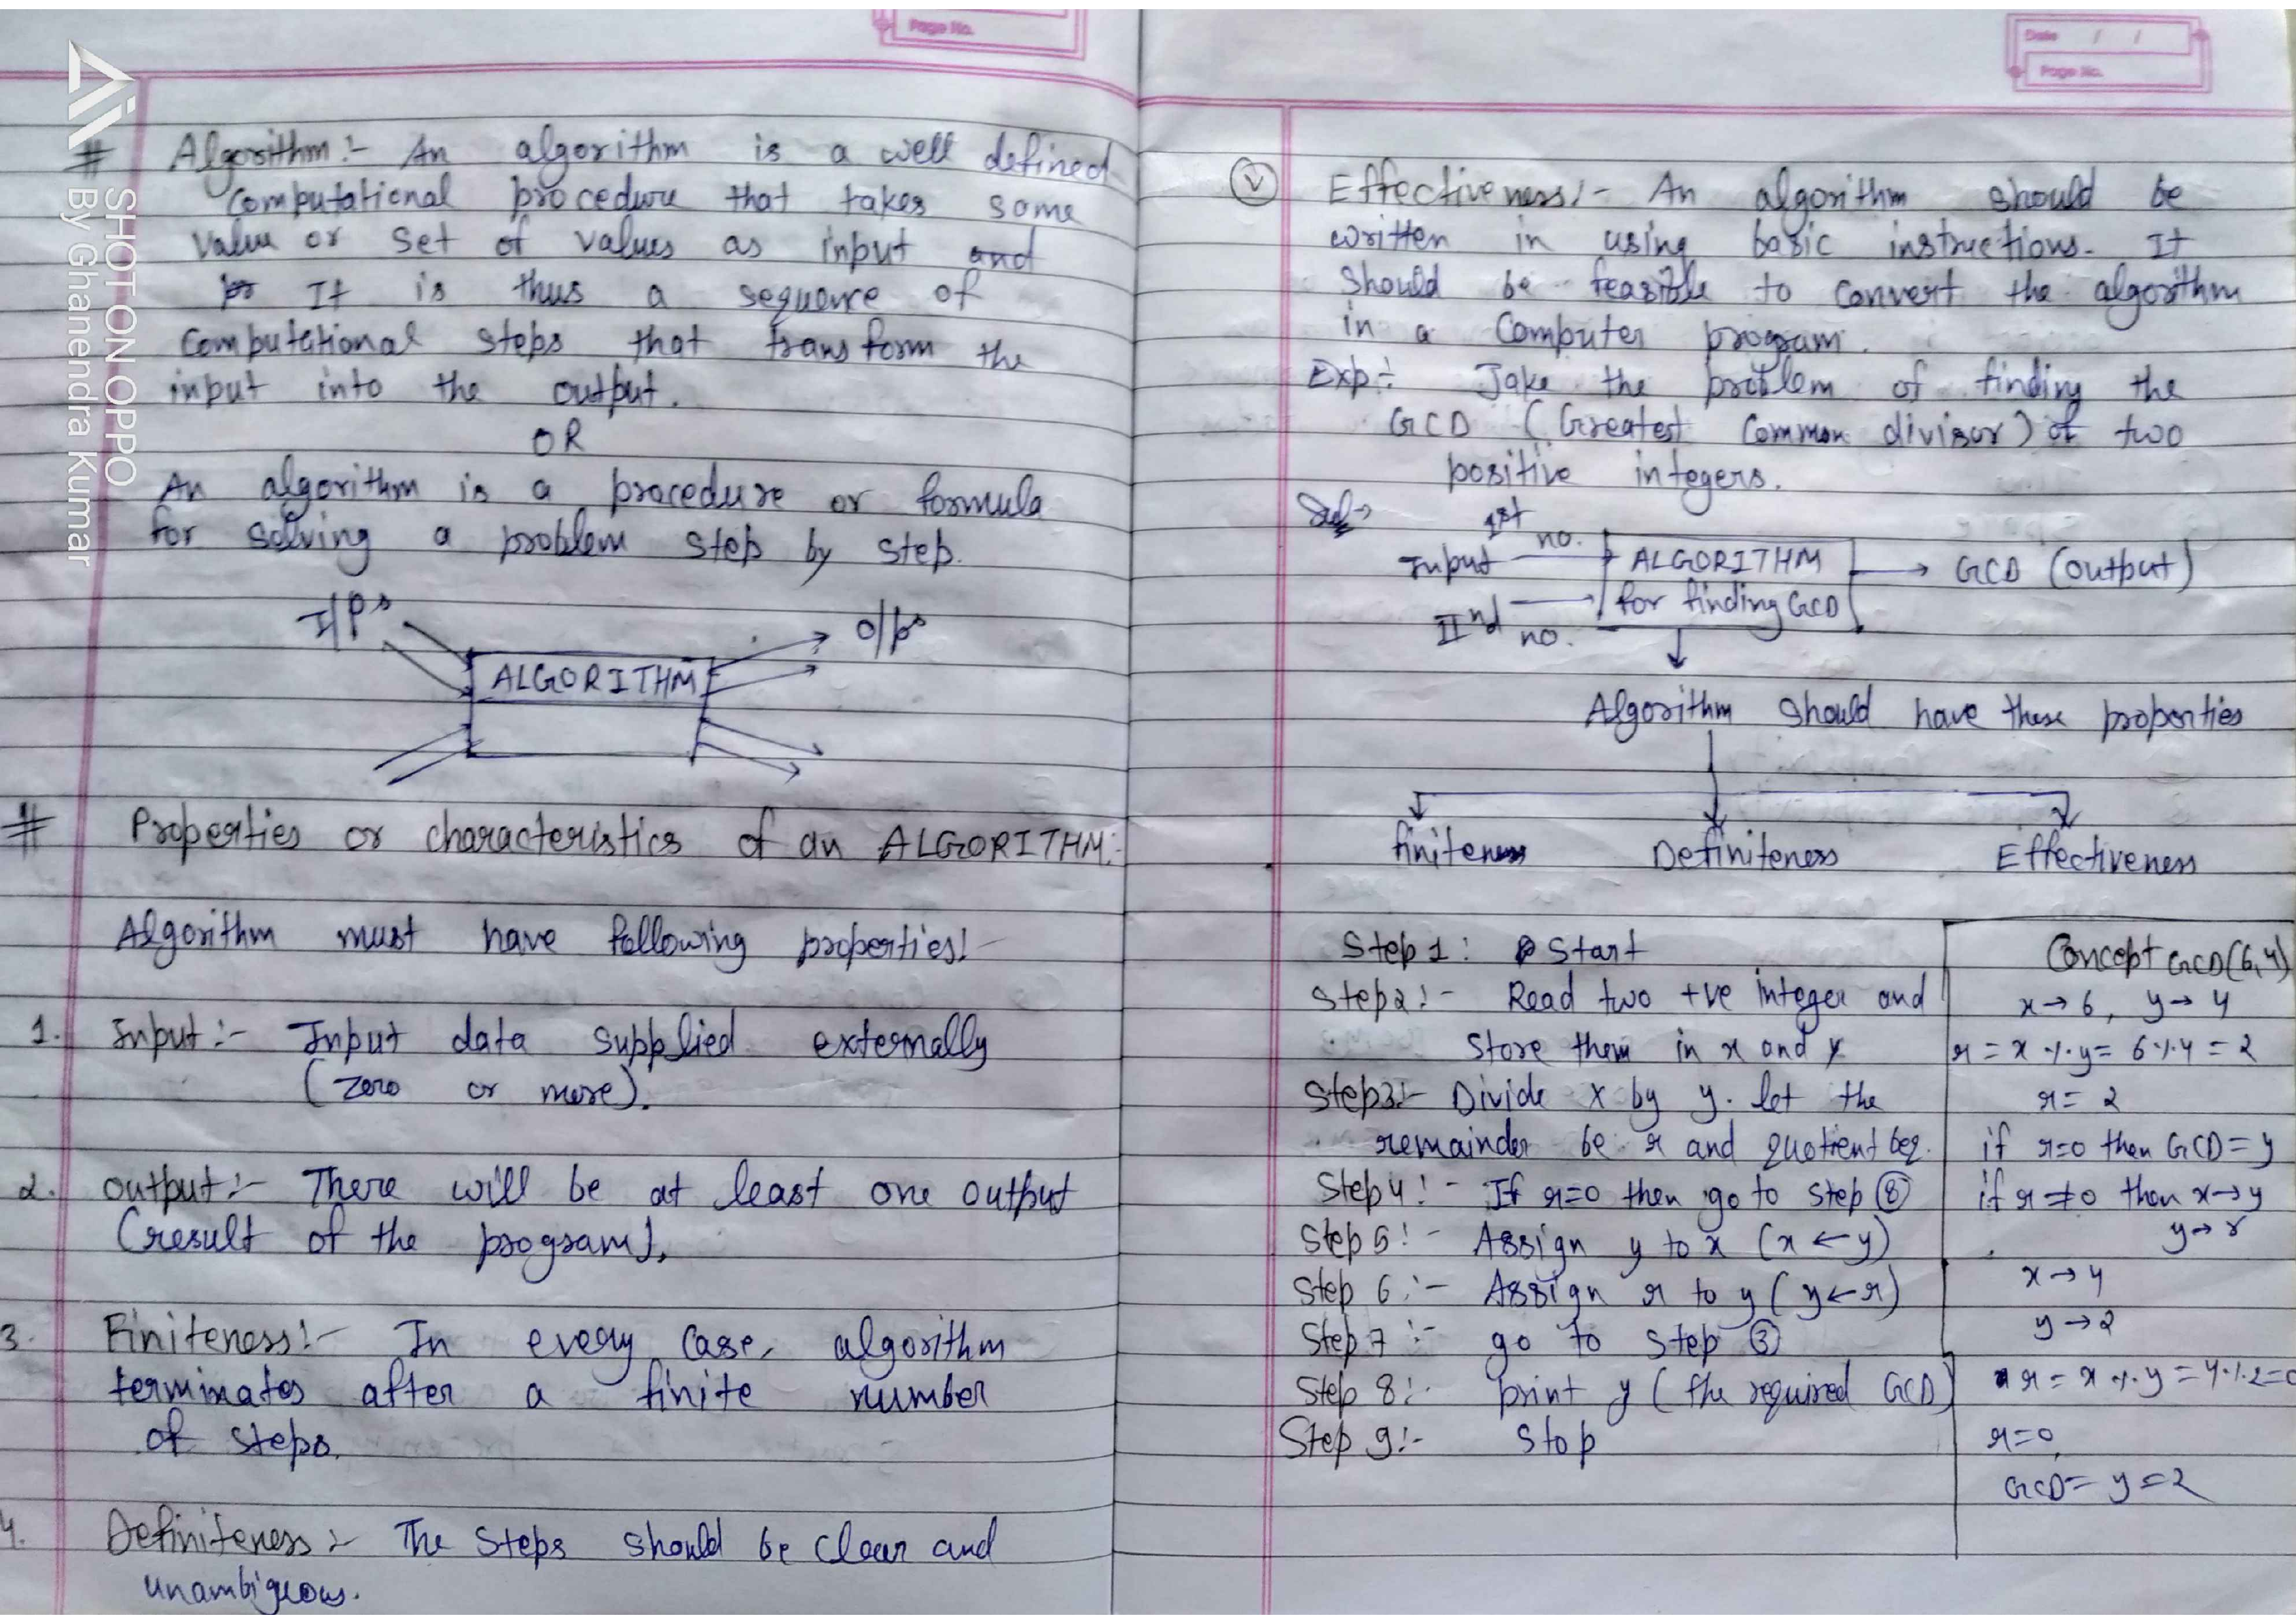 Page No.
# Algorithm:- An algorithm is a well defined
Computational procedure that takes some
value or set of values as input and
It is thus a sequence of
Computational steps that transform the
input into the output.
OR
An algorithm is a procedure or formula
for solving a problem step by step.
I/Ps
O/Ps
ALGORITHM
# Properties or characteristics of an ALGORITHM:-
Algorithm must have following properties:-
1. Input:- Input data supplied externally
(zero or more).
2. output:- There will be at least one output
(result of the program).
3. Finiteness:- In every case, algorithm
terminates after a finite number
of steps.
4. Definiteness:- The Steps should be clear and
unambiguous.
SHOT ON OPPO
By Ghanendra Kumar
Date / /
Page No.
(V) Effectiveness:- An algorithm should be
written in using basic instructions. It
should be feasible to convert the algorithm
in a Computer program.
Exp:- Take the problem of finding the
GCD (Greatest Common divisor) of two
positive integers.
Sol→
1st no.
Input
IInd no.
ALGORITHM
for finding GCD
GCD (output)
Algorithm should have these properties
finiteness Definiteness Effectiveness
Step 1: Start
Step 2:- Read two +ve integer and
Store them in x and y
Step 3:- Divide x by y. let the
remainder be r and quotient be q.
Step 4:- If r=0 then go to step (8)
Step 5:- Assign y to x (x ← y)
Step 6:- Assign r to y (y ← r)
Step 7:- go to step (3)
Step 8:- print y (the required GCD)
Step 9:- Stop
Concept GCD(6,4)
x → 6, y → 4
r = x % y = 6 % 4 = 2
r = 2
if r=0 then GCD = y
if r ≠ 0 then x → y
y → r
x → 4
y → 2
r = x % y = 4 % 2 = 0
r=0,
GCD = y = 2